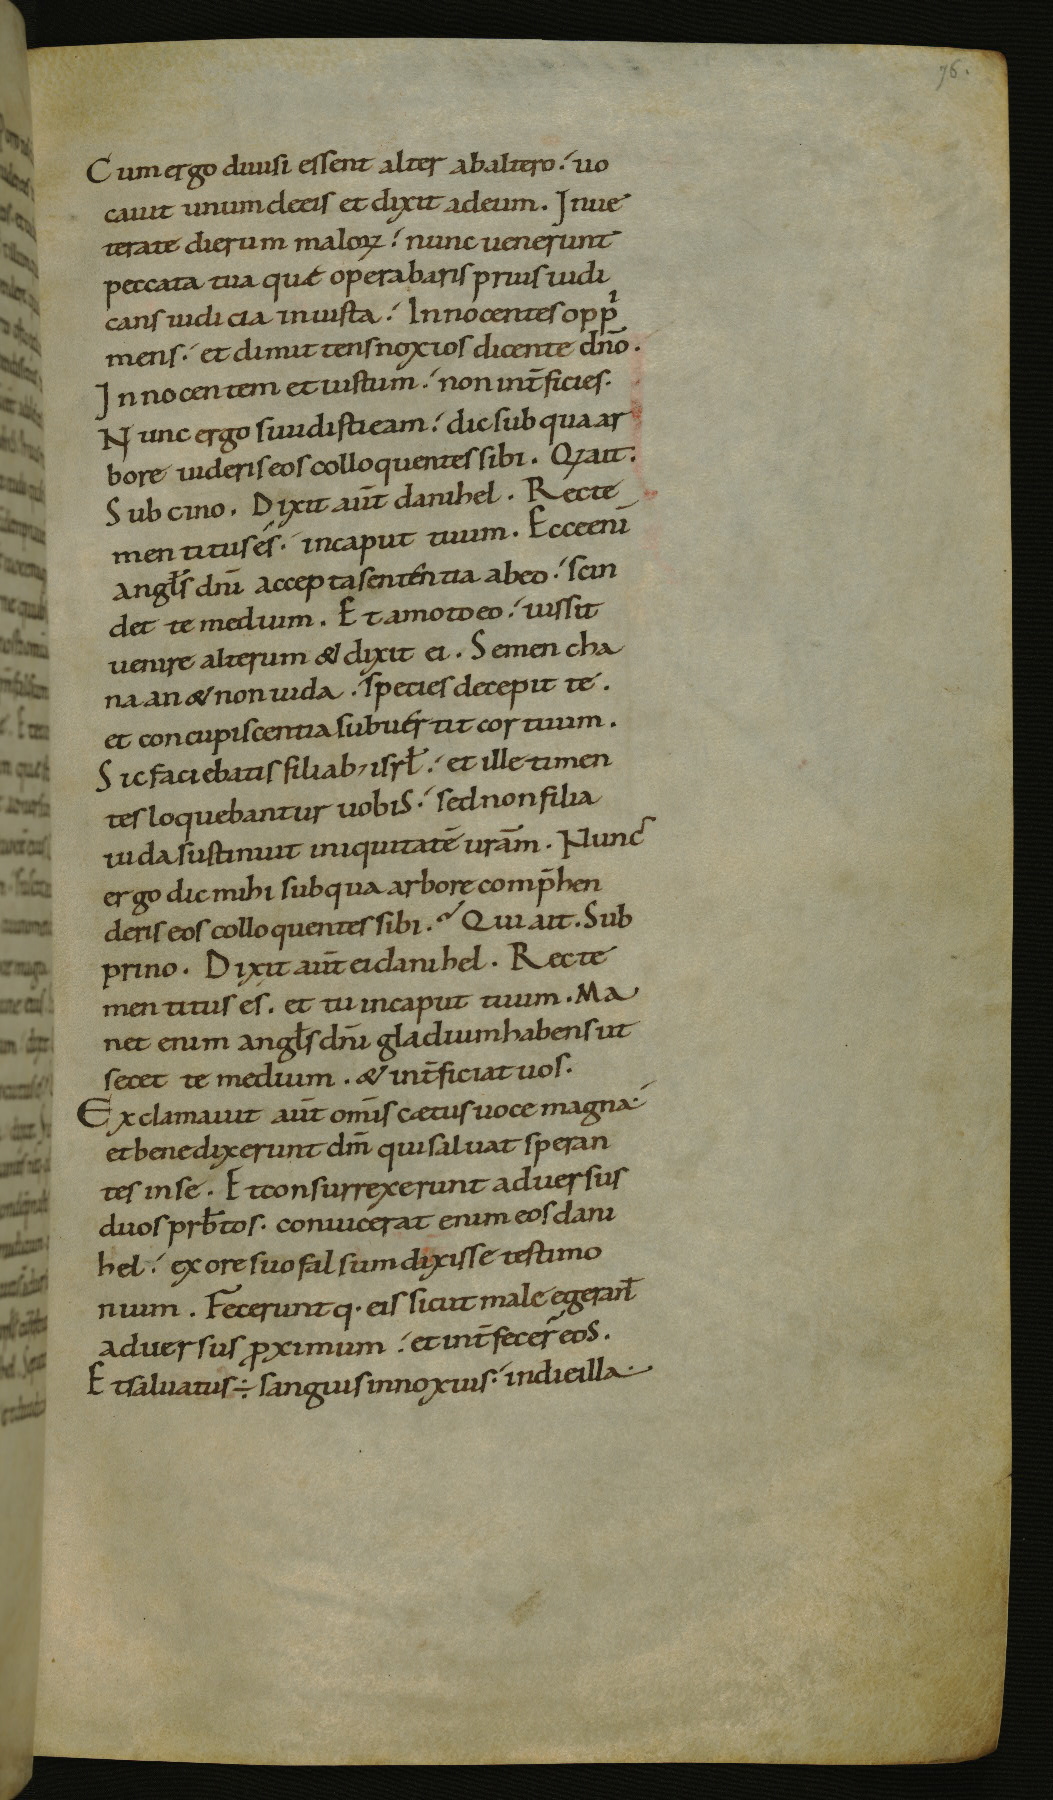 76.
Cum ergo diuisi essent alter ab altero. uo
cauit unum de eis et dixit ad eum. Inue
terate dierum maloꝝ. nunc uenerunt
peccata tua quę operabaris prius iudi
cans iudicia iniusta. Innocentes oppͥ
mens. et dimittens noxios dicente dn̄o.
Innocentem et iustum. non int̄ficies.
Nunc ergo si uidisti eam. dic sub qua ar
bore uideris eos colloquentes sibi. Qꝫ ait.
Sub cino. Dixit aūt danihel. Recte
mentitus es. in caput tuum. Ecce enī
angl̄s dn̄i accepta sententia ab eo. scin
det te medium. Et amoto eo. iussit
uenire alterum & dixit ei. Semen cha
naan & non iuda. species decepit te.
et concupiscentia subuertit cor tuum.
Sic faciebatis filiab, isrl̄. et ille timen
tes loquebantur uobis. sed non filia
iuda sustinuit iniquitatē urām. Nunc
ergo dic mihi sub qua arbore comp̄hen
deris eos colloquentes sibi. Qui ait. Sub
prino. Dixit aūt ei danihel. Recte
mentitus es. et tu in caput tuum. Ma
net enim angl̄s dn̄i gladium habens ut
secet te medium. & int̄ficiat uos.
Exclamauit aūt om̄is cætus uoce magna.
et benedixerunt dm̄ qui saluat speran
tes in se. Et consurrexerunt aduersus
duos prb̄tos. conuicerat enim eos dani
hel. ex ore suo falsum dixisse testimo
nium. Fecerunt q. eis sicut male egeran̄t
aduersus ꝓximum. et int̄fecer̄ eos.
Et saluatus ÷ sanguis innoxius. in die illa.